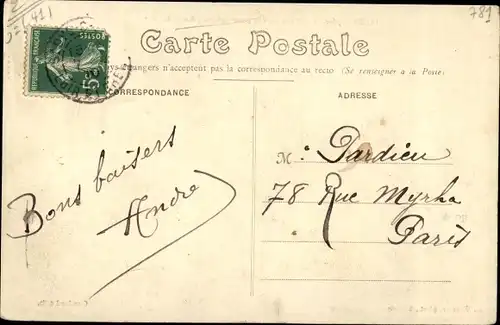 (41)
781
Carte Postale
pays étrangers n'acceptent pas la correspondance au recto (Se renseigner à la Poste)
CORRESPONDANCE
ADRESSE
REPUBLIQUE FRANÇAISE
POSTES
5c
Bons baisers
André
M. Pardieu
78 Rue Myrha
Paris